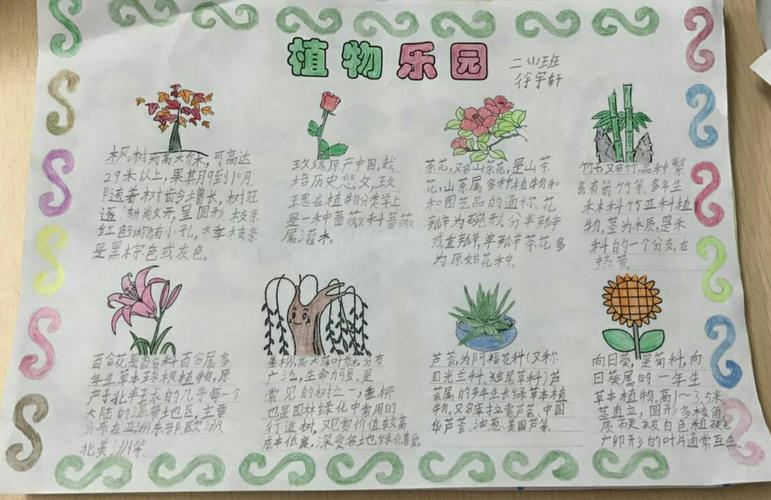 植物乐园
二小班
徐宇轩
枫树为高大乔木，可高达
29米以上，果其月9到10月
随着树龄增长，树冠
逐渐敞开，呈圆形，枝条
红色 有小孔，冬季枝条
是黑棕色或灰色。
玫瑰原产中国，栽
培历史悠久，玫
瑰在植物分类学上
是一种蔷薇科蔷薇
属灌木。
茶花，又名山茶花，是山茶
花，山茶属多种植物和
和园艺品的通称，花
瓣为碗形，分单瓣
或重瓣，单瓣茶花多
为原始花种。
竹 又名竹品种繁
多有箭竹等，多年生
禾本科竹亚科植
物，茎为木质，是禾
科的一个分支，在
热带。
百合花是百合科百合属多
年生草本球根植物，原
产于北半球的几乎每一个
大陆的温带地区，主要
分布在亚洲东部欧洲
北美洲等。
垂柳，高大落叶 分布
广泛，生命力强，是
常见的树之一，垂柳
也是园林绿化中常用的
行道树，观赏价值较高
成本低廉，深受各地绿化喜爱
芦荟，为阿福花科（又称
日光兰科、独尾草科）芦
荟属的多年生长绿草本植
物，又名库拉索芦荟、中国
华芦荟、油葱、美国芦荟。
向日葵，是菊科，向
日葵属的一年生
草本植物，高1～3.5米
茎直立，圆形多棱角
质 被白色粗硬毛
广卵形的叶片通常互生